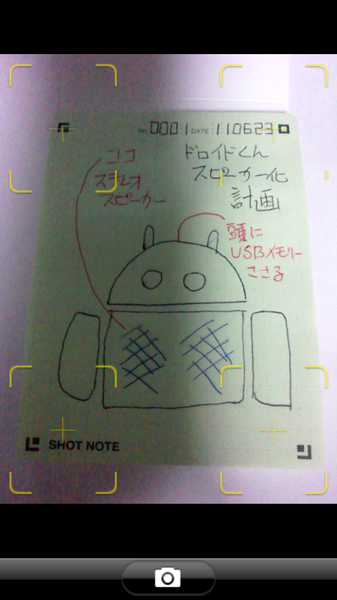 No. 0001 DATE: 110623
ドロイドくん
スピーカー化
計画
ココ
ステレオ
スピーカー
頭に
USBメモリー
ささる
SHOT NOTE